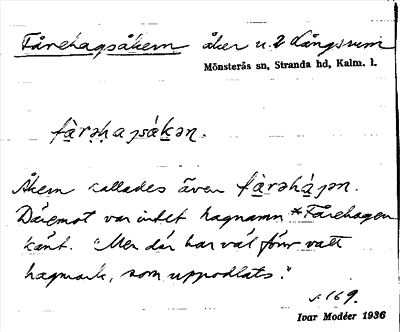 Fårehagsåkern åker u. 2 Långsrum
Mönsterås sn, Stranda hd, Kalm. l.
fàrəhaɟsákən.
Åkern kallades även fàrəhàɟən.
Däremot var intet hagnamn *Fårehagen
känt. "Men där har väl förr vatt
hagmark, som uppodlats."
s. 169.
Ivar Modéer 1936